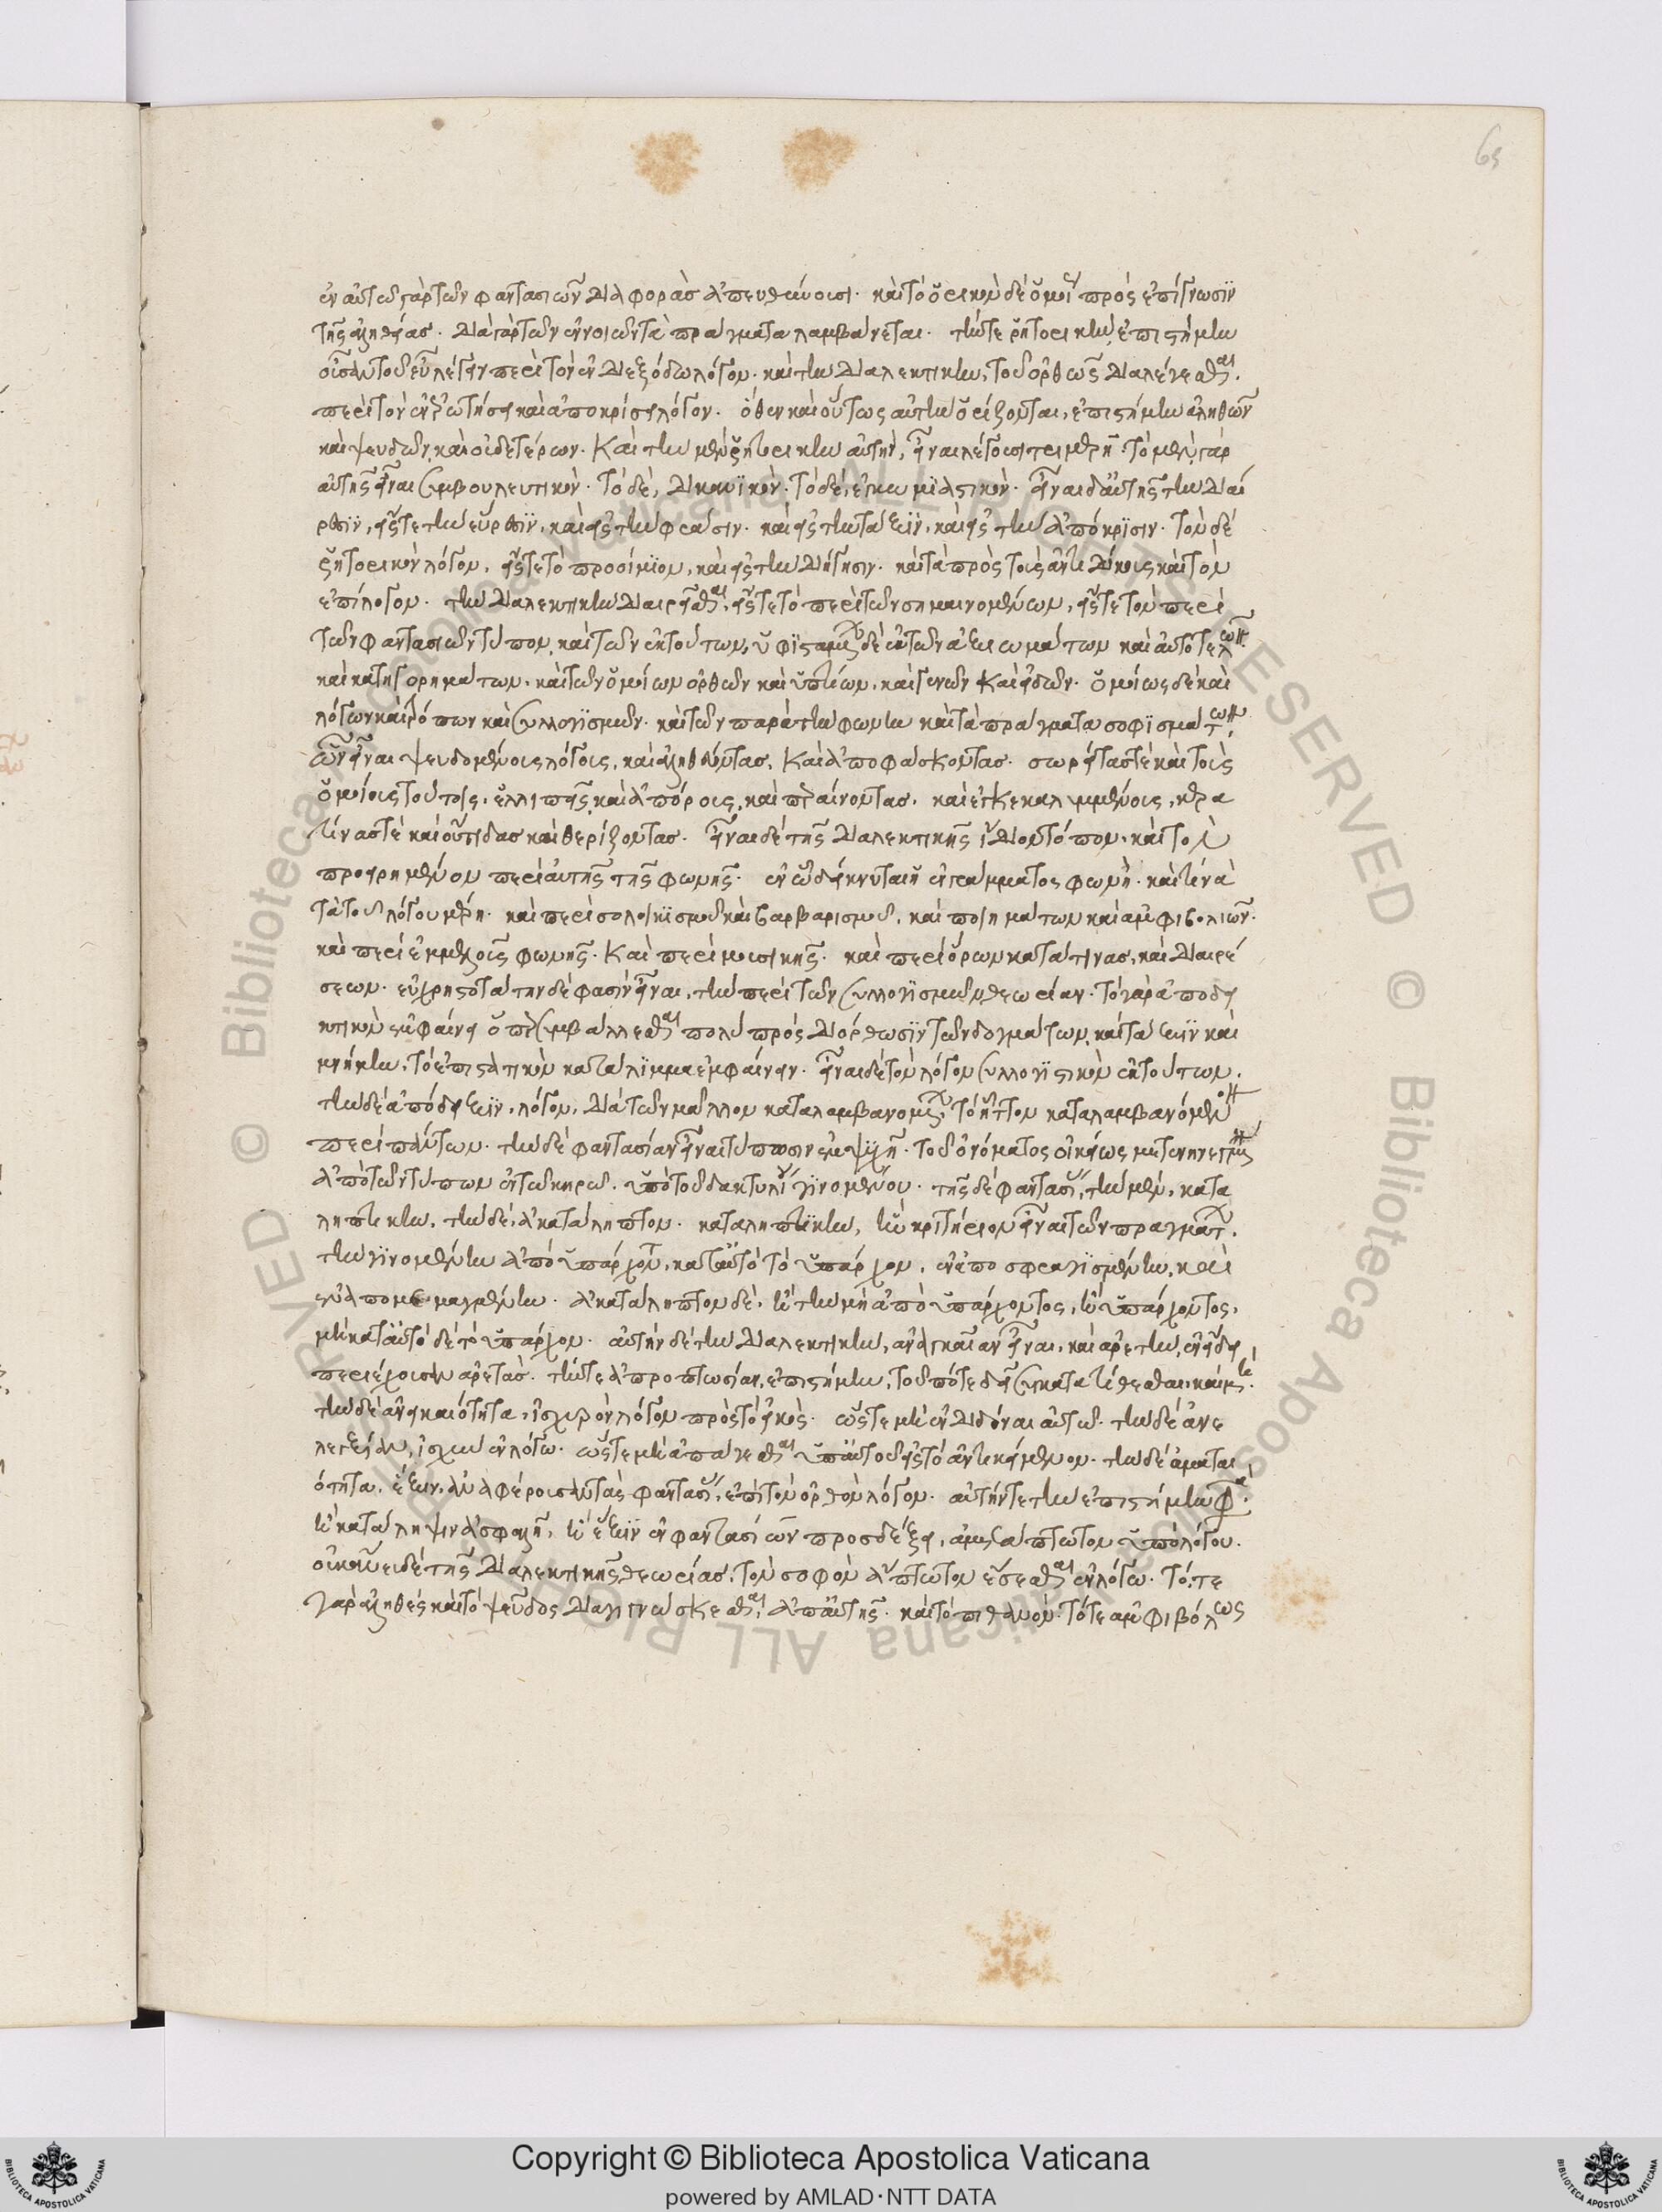 ἐν αὐτῷ γὰρ τῶν φαντασιῶν διαφορὰς ἀπευθύνουσι. καὶ τὸ ὁρικὸν δὲ ὁμοί πρὸς ἐπίγνωσιν
τῆς ἀληθείας. διὰ γὰρ τῶν ἐννοιῶν τὰ πράγματα λαμβάνεται. τήν τε ῥητορικὴν ἐπιστήμην
οὖσαν τοῦ εὖ λέγειν περὶ τὸν ἐν διεξόδῳ λόγον. καὶ τὴν διαλεκτικὴν, τοῦ ὀρθῶς διαλέγεσθαι.
περὶ τὸν ἐν ἐρωτήσει καὶ ἀποκρίσει λόγον. ὅθεν καὶ οὕτως αὐτὴν ὁρίζονται, ἐπιστήμην ἀληθῶν
καὶ ψευδῶν, καὶ οὐδετέρων. Καὶ τὴν μὲν ῥητορικὴν αὐτὴν, εἶναι λέγουσι τριμερῆ. Τὸ μὲν γὰρ
αὐτῆς εἶναι συμβουλευτικόν. Τὸ δὲ, δικανϊκόν. Τὸ δὲ, ἐγκωμϊαστικόν. εἶναι δ' αὐτῆς τὴν διαί
ρεσϊν, εἴς τε τὴν εὕρεσϊν, καὶ εἰς τὴν φράσιν. καὶ εἰς τὴν τάξϊν, καὶ εἰς τὴν ὑπόκρϊσιν. Τὸν δὲ
ῥητορικὸν λόγον, εἴς τε τὸ προοίμϊον, καὶ εἰς τὴν διήγησιν. καὶ τὰ πρὸς τοὺς ἀντιδίκους καὶ τὸν
ἐπίλογον. τὴν διαλεκτικὴν διαιρεῖσθαι, εἴς τε τὸ περὶ τῶν σημαινομένων, εἴς τε τὸν περὶ
τῶν φαντασιῶν τύπον, καὶ τῶν ἐκ τούτων, ὑφϊσταμένων δὲ ἐκ τῶν ἀξιωμάτων καὶ αὐτοτελῶν
καὶ κατηγορημάτων. καὶ τῶν ὁμοίων ὀρθῶν καὶ ὑπτίων. καὶ γενῶν καὶ εἰδῶν. ὁμοίως δὲ καὶ
λόγων καὶ τρόπων καὶ συλλογϊσμῶν. καὶ τῶν παρὰ τὴν φωνὴν καὶ τὰ πράγματα σοφϊσμάτων,
ὧν εἶναι ψευδομένους λόγους, καὶ ἀληθεύοντας, Καὶ ἀποφάσκοντας. σωρείτας τὲ καὶ τοὺς
ὁμοίους τούτοις. ἐλλιπεῖς, καὶ ἀπόρους, καὶ περαίνοντας. καὶ ἐγκεκαλυμμένους, κερα
τίνας τὲ καὶ οὔτιδας καὶ θερίζοντας. εἶναι δὲ τῆς διαλεκτικῆς ἴδιον τόπον. καὶ τὸν
προειρημένον περὶ αὐτῆς τῆς φωνῆς. ἐν ᾧ δείκνυται ἡ ἐγγράμματος φωνὴ. καὶ τίνα
τὰ τοῦ λόγου μέρη. καὶ περὶ σολοικϊσμοῦ καὶ βαρβαρισμοῦ, καὶ ποιημάτων καὶ ἀμφιβολιῶν.
καὶ περὶ ἐμμελοῦς φωνῆς. Καὶ περὶ μουσικῆς. καὶ περὶ ὅρων κατά τινας, καὶ διαιρέ
σεων. εὐχρηστοτάτην δέ φασιν εἶναι, τὴν περὶ τῶν συλλογϊσμῶν θεωρίαν. Τὸ γὰρ ἀποδει
κτικὸν ἐμφαίνει ὅπερ συμβάλλεσθαι πολὺ πρὸς διόρθωσϊν τῶν δογμάτων, καὶ τάξϊν καὶ
μνήμην. Τὸ ἐπιστατικὸν κατάλϊμμα ἐμφαίνειν. εἶναι δὲ τὸν λόγον συλλογϊστικὸν ἐκ τούτων.
τὴν δὲ ἀπόδειξϊν, λόγον, διὰ τῶν μᾶλλον καταλαμβανομένων, τὸ ἧττον καταλαμβανόμενον
περὶ πάντων. τὴν δὲ φαντασίαν εἶναι τύπωσιν ἐν ψυχῇ. Τοῦ ὀνόματος οἰκείως μετενηνεγμένου
ἀπὸ τῶν τύπων ἐν τῷ κηρῷ. ὑπὸ τοῦ δακτυλίου γϊνομένου. τῆς δὲ φαντασί, τὴν μὲν, κατα
ληπτικὴν, τὴν δὲ, ἀκατάληπτον. καταληπτϊκὴν, ἣν κριτήριον εἶναι τῶν πραγμάτ.
τὴν γϊνομένην ἀπὸ ὑπάρχοντ, κατ' αὐτὸ τὸ ὑπάρχον, ἐναποσφραγϊσμένην, καὶ
ἐναπομεμαγμένην. ἀκατάληπτον δὲ, ἢ τὴν μὴ ἀπὸ ὑπάρχοντος, ἢ ὑπάρχοντος,
μὴ κατ' αὐτὸ δὲ τὸ ὑπάρχον. αὐτὴν δὲ τὴν διαλεκτικὴν, ἀναγκαίαν εἶναι, καὶ ἀρετὴν, ἐν εἴδει
περιέχουσαν ἀρετάς. τήν τε ἀπροπτωσίαν, ἐπιστήμην, τοῦ πότε δεῖ συγκατατίθεσθαι, καὶ μή.
τὴν δὲ ἀνεικαιότητα, ἰσχυρὸν λόγον πρὸς τὸ εἰκὸς. ὥστε μὴ ἐνδιδόναι αὐτῷ. τὴν δὲ ἀνε
λεγξίαν, ἰσχὺν ἐν λόγῳ. ὥστε μὴ ἀπάγεσθαι ὑπ' αὐτοῦ εἰς τὸ ἀντικείμενον. τὴν δὲ ἀμαται
ότητα, ἕξιν, ἀναφέρουσαν τὰς φαντασί, ἐπὶ τὸν ὀρθὸν λόγον. αὐτήν τε τὴν ἐπιστήμην φα.
ἢ κατάληψιν ἀσφαλῆ, ἢ ἕξϊν ἐν φαντασιῶν προσδέξει, ἀμετάπτωτον ὑπὸ λόγου.
οὐκ ἄνευ δὲ τῆς διαλεκτικῆς θεωρίας, τὸν σοφὸν ἄπτωτον ἔσεσθαι ἐν λόγῳ. Τό τε
γὰρ ἀληθὲς καὶ τὸ ψεῦδος διαγινώσκεσθαι, ἀπ' αὐτῆς. καὶ τὸ πιθανὸν. τό τε ἀμφιβόλως
Copyright © Biblioteca Apostolica Vaticana
powered by AMLAD·NTT DATA